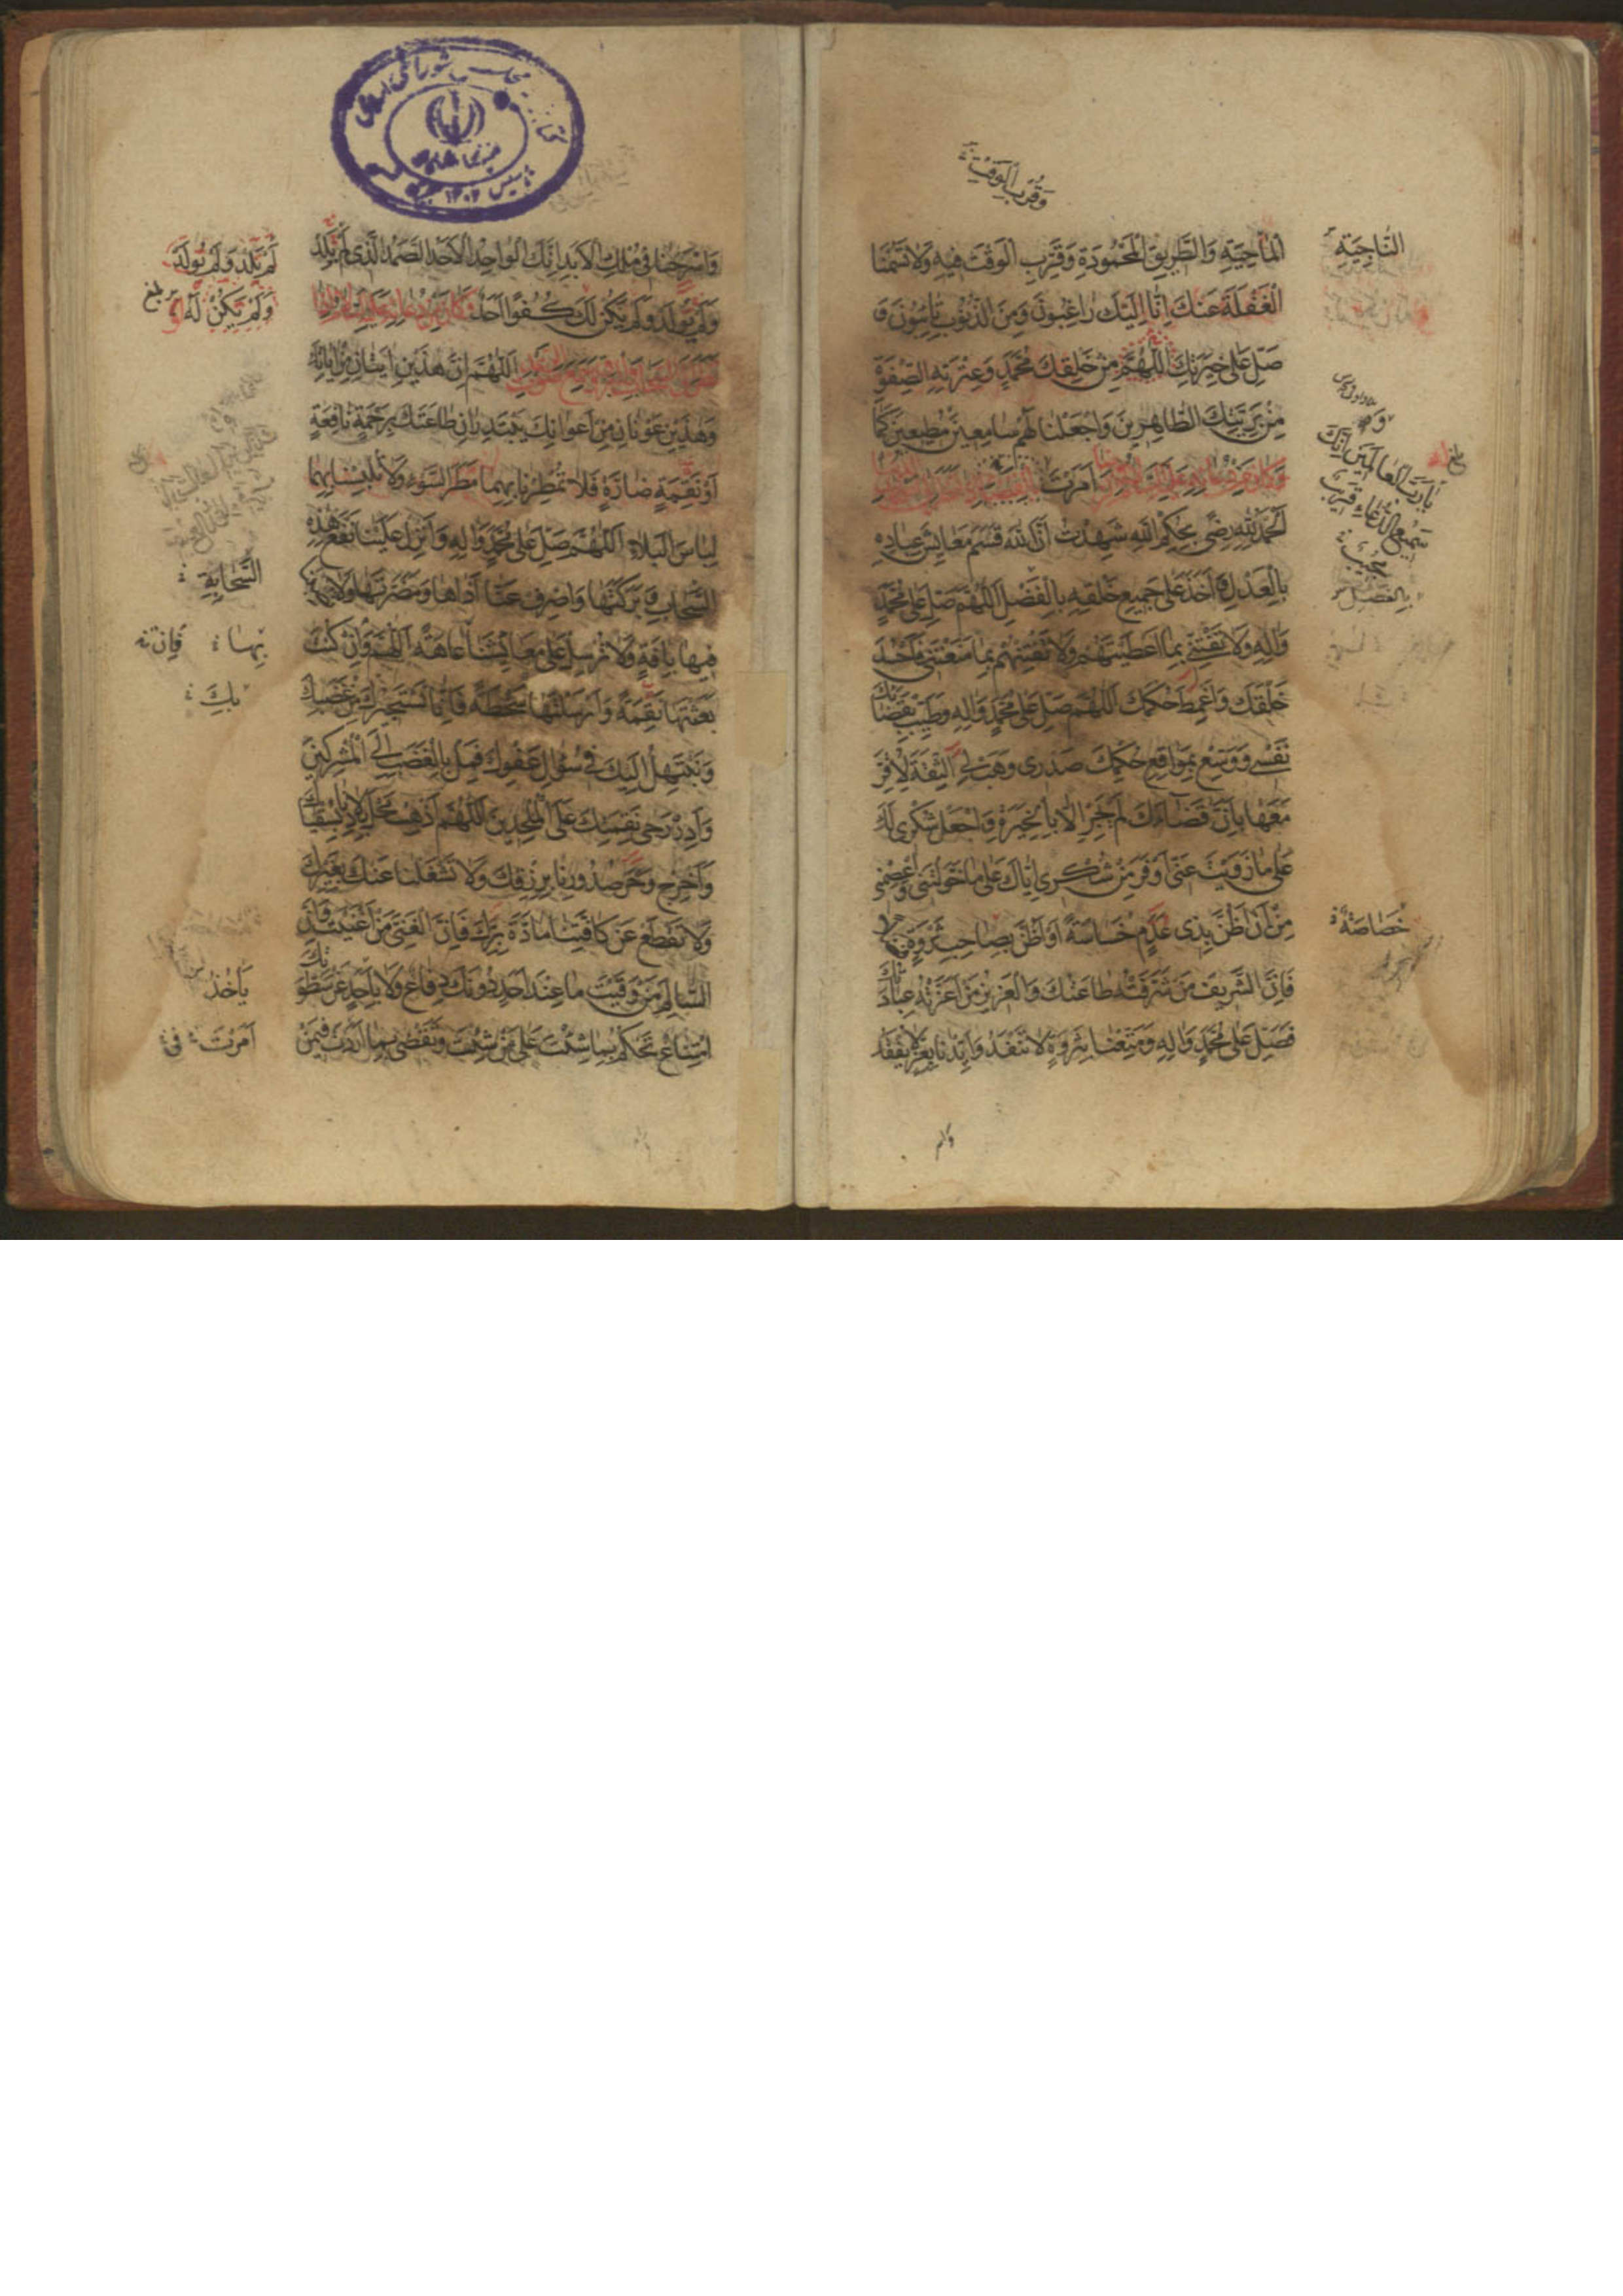 وَقُرْبِ الْوَقْتِ
الْمَاحِيَةِ وَالطَّرِيقِ الْمَحْمُودَةِ وَقَرِّبِ الْوَقْتَ فِيهِ وَلَا تَسُمْنَا
الْغَفْلَةَ عَنْكَ إِنَّا إِلَيْكَ رَاغِبُونَ وَمِنَ الذُّنُوبِ تَائِبُونَ وَ
صَلِّ عَلَى خِيَرَتِكَ اللَّهُمَّ مِنْ خَلْقِكَ مُحَمَّدٍ وَعِتْرَتِهِ الصِّفْوَةِ
مِنْ بَرِيَّتِكَ الطَّاهِرِينَ وَاجْعَلْنَا لَهُمْ سَامِعِينَ مُطِيعِينَ كَمَا
أَمَرْتَ
الْحَمْدُ لِلَّهِ رِضًى بِحُكْمِ اللَّهِ شَهِدْتُ أَنَّ اللَّهَ قَسَمَ مَعَايِشَ عِبَادِهِ
بِالْعَدْلِ وَأَخَذَ عَلَى جَمِيعِ خَلْقِهِ بِالْفَضْلِ اللَّهُمَّ صَلِّ عَلَى مُحَمَّدٍ
وَآلِهِ وَلَا تَفْتِنِّي بِمَا أَعْطَيْتَهُمْ وَلَا تَفْتِنْهُمْ بِمَا مَنَعْتَنِي فَأَحْسُدَ
خَلْقَكَ وَأَغْمِطَ حُكْمَكَ اللَّهُمَّ صَلِّ عَلَى مُحَمَّدٍ وَآلِهِ وَطَيِّبْ بِقَضَائِكَ
نَفْسِي وَوَسِّعْ بِمَوَاقِعِ حُكْمِكَ صَدْرِي وَهَبْ لِيَ الثِّقَةَ لِأُقِرَّ
مَعَهَا بِأَنَّ قَضَاءَكَ لَمْ يَجْرِ إِلَّا بِالْخِيَرَةِ وَاجْعَلْ شُكْرِي لَكَ
عَلَى مَا زَوَيْتَ عَنِّي أَوْفَرَ مِنْ شُكْرِي إِيَّاكَ عَلَى مَا خَوَّلْتَنِي وَاعْصِمْنِي
مِنْ أَنْ أَظُنَّ بِذِي عَدَمٍ خَسَاسَةً أَوْ أَظُنَّ بِصَاحِبِ ثَرْوَةٍ فَضْلًا
فَإِنَّ الشَّرِيفَ مَنْ شَرَّفَتْهُ طَاعَتُكَ وَالْعَزِيزَ مَنْ أَعَزَّتْهُ عِبَادَتُكَ
فَصَلِّ عَلَى مُحَمَّدٍ وَآلِهِ وَمَتِّعْنَا بِثَرْوَةٍ لَا تَنْفَدُ وَأَيِّدْنَا بِعِزٍّ لَا يُفْقَدُ
النَّاحِيَةِ
يَا رَبَّ الْعَالَمِينَ إِنَّكَ
سَمِيعُ الدُّعَاءِ قَرِيبٌ
مُجِيبٌ
بِالْفَضْلِ
خَصَاصَةً
وَاسْرَحْنَا فِي مُلْكِ الْأَبَدِ إِنَّكَ الْوَاحِدُ الْأَحَدُ الصَّمَدُ الَّذِي لَمْ يَلِدْ
وَلَمْ يُولَدْ وَلَمْ يَكُنْ لَكَ كُفُوًا أَحَدٌ
اللَّهُمَّ إِنَّ هَذَيْنِ آيَتَانِ مِنْ آيَاتِكَ
وَهَذَيْنِ عَوْنَانِ مِنْ أَعْوَانِكَ يَبْتَدِرَانِ طَاعَتَكَ بِرَحْمَةٍ نَافِعَةٍ
أَوْ نَقِمَةٍ ضَارَّةٍ فَلَا تُمْطِرْنَا بِهِمَا مَطَرَ السَّوْءِ وَلَا تُلْبِسْنَا بِهِمَا
لِبَاسَ الْبَلَاءِ اللَّهُمَّ صَلِّ عَلَى مُحَمَّدٍ وَآلِهِ وَأَنْزِلْ عَلَيْنَا نَفْعَ هَذِهِ
السَّحَابِ وَبَرَكَتَهَا وَاصْرِفْ عَنَّا أَذَاهَا وَمَضَرَّتَهَا وَلَا تُصِبْنَا
فِيهَا بِآفَةٍ وَلَا تُرْسِلْ عَلَى مَعَايِشِنَا عَاهَةً اللَّهُمَّ وَإِنْ كُنْتَ
بَعَثْتَهَا نَقِمَةً وَأَرْسَلْتَهَا سَخْطَةً فَإِنَّا نَسْتَجِيرُكَ مِنْ غَضَبِكَ
وَنَبْتَهِلُ إِلَيْكَ فِي سُؤَالِ عَفْوِكَ فَمِلْ بِالْغَضَبِ إِلَى الْمُشْرِكِينَ
وَأَدِرْ رَحَى نَقِمَتِكَ عَلَى الْمُلْحِدِينَ اللَّهُمَّ أَذْهِبْ مَحْلَ بِلَادِنَا بِسُقْيَاكَ
وَأَخْرِجْ وَحَرَ صُدُورِنَا بِرِزْقِكَ وَلَا تَشْغَلْنَا عَنْكَ بِغَيْرِكَ
وَلَا تَقْطَعْ عَنْ كَافَّتِنَا مَادَّةَ بِرِّكَ فَإِنَّ الْغَنِيَّ مَنْ أَغْنَيْتَ وَإِنَّ
السَّالِمَ مَنْ وَقَيْتَ مَا عِنْدَ أَحَدٍ دُونَكَ دِفَاعٌ وَلَا بِأَحَدٍ عَنْ سَطْوَتِكَ
امْتِنَاعٌ تَحْكُمُ بِمَا شِئْتَ عَلَى مَنْ شِئْتَ وَتَقْضِي بِمَا أَرَدْتَ فِيمَنْ
لَمْ يَلِدْ وَلَمْ يُولَدْ
وَلَمْ يَكُنْ لَهُ بلغ
السَّحَابَةِ
بِهَا فَإِنْ
بِكَ
يَأْخُذُ
أَمَرْتَ فِي